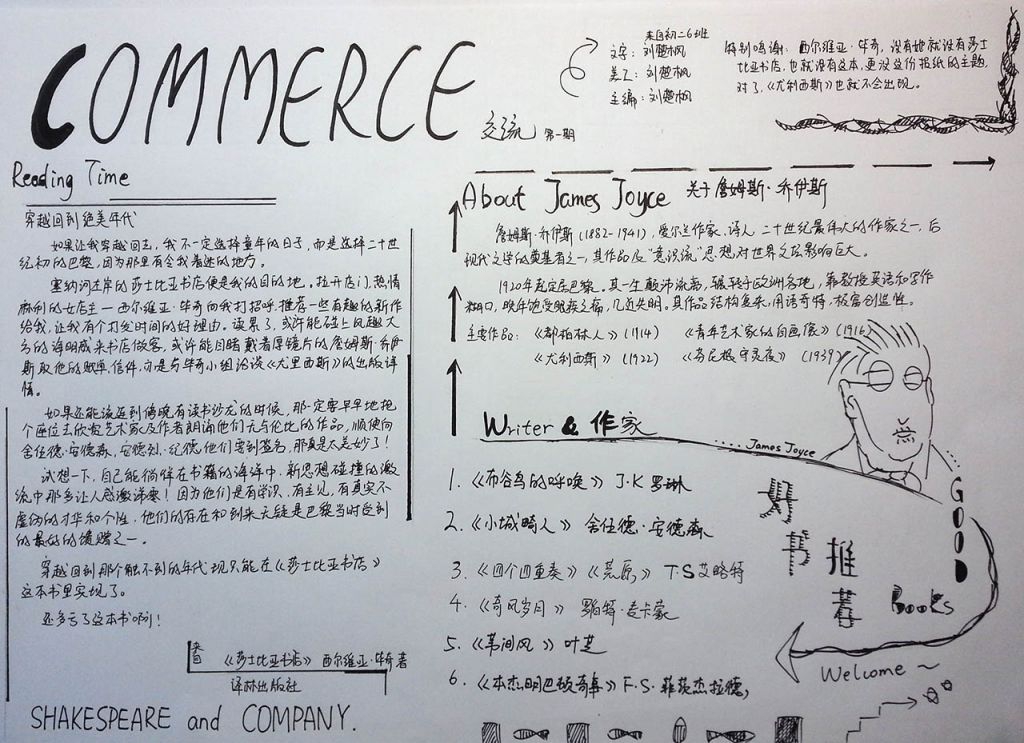 COMMERCE
交流 第一期
来自初二6班
文字：刘楚枫
美工：刘楚枫
主编：刘楚枫
特别鸣谢：西尔维亚·毕奇，没有她就没有莎士
比亚书店，也就没有这本，更没这份报纸的主题，
对了，《尤利西斯》也就不会出现。
Reading Time
穿越回到绝美年代
如果让我穿越回去，我不一定选择童年的日子，而是选择二十世
纪初的巴黎，因为那里有令我着迷的地方。
塞纳河左岸的莎士比亚书店便是我的目的地。拉开店门，热情
麻利的女店主——西尔维亚·毕奇向我打招呼，推荐一些有趣的新作
给我，让我有个打发时间的好理由。读累了，或许能碰上风趣大
方的海明威来书店做客，或许能目睹戴着厚镜片的詹姆斯·乔伊
斯取他的账单、信件，亦是与毕奇小姐洽谈《尤里西斯》的出版详
情。
如果还能谈逗到傍晚有读书沙龙的时候，那一定要早早地把
个座位去欣赏艺术家及作者朗诵他们无与伦比的作品，顺便向
舍伍德·安德森、安德烈·纪德他们要到签名，那真是太美妙了！
试想一下，自己能徜徉在书籍的海洋中，新思想碰撞的激
流中那多让人感激涕零！因为他们是有学识、有主见，有真实不
虚伪的才华和个性，他们的存在和到来无疑是巴黎当时受到
的最好的馈赠之一。
穿越回到那个触不到的年代现只能在《莎士比亚书店》
这本书里实现了。
还多亏了这本书咧！
《莎士比亚书店》 西尔维亚·毕奇 著
译林出版社
SHAKESPEARE and COMPANY.
About James Joyce 关于詹姆斯·乔伊斯
詹姆斯·乔伊斯（1882-1941），爱尔兰作家、诗人，二十世纪最伟大的作家之一，后
现代文学的奠基者之一，其作品及“意识流”思想对世界文坛影响巨大。
1920年起定居巴黎。其一生颠沛流离，辗转于欧洲各地，靠教授英语和写作
糊口，晚年饱受眼疾之痛，几近失明。其作品结构复杂，用语奇特，极富创造性。
主要作品：《都柏林人》（1914） 《青年艺术家的自画像》（1916）
《尤利西斯》（1922） 《芬尼根守灵夜》（1939）
Writer & 作家
James Joyce
1. 《布谷鸟的呼唤》 J·K 罗琳
2. 《小城畸人》 舍伍德·安德森
3. 《四个四重奏》《荒原》 T·S 艾略特
4. 《奇风岁月》 罗伯特·麦卡蒙
5. 《苇间风》 叶芝
6. 《本杰明巴顿奇事》 F·S·菲茨杰拉德
好书推荐
GOOD
Books
Welcome ~